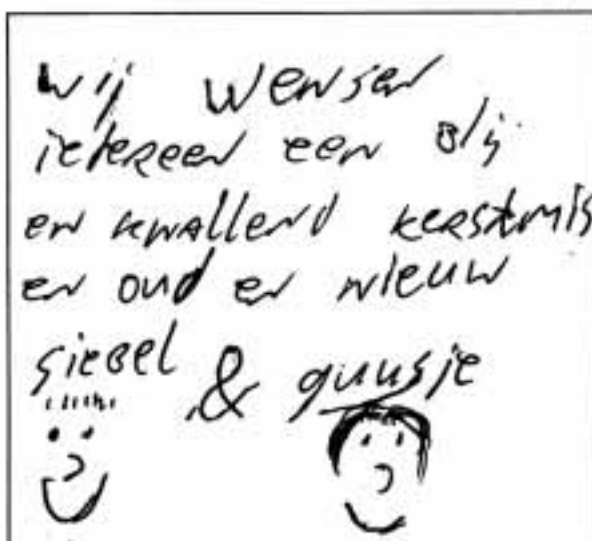 wij wensen
iedereen een blij
en knallend kerstmis
en oud en nieuw
giebel & guusje